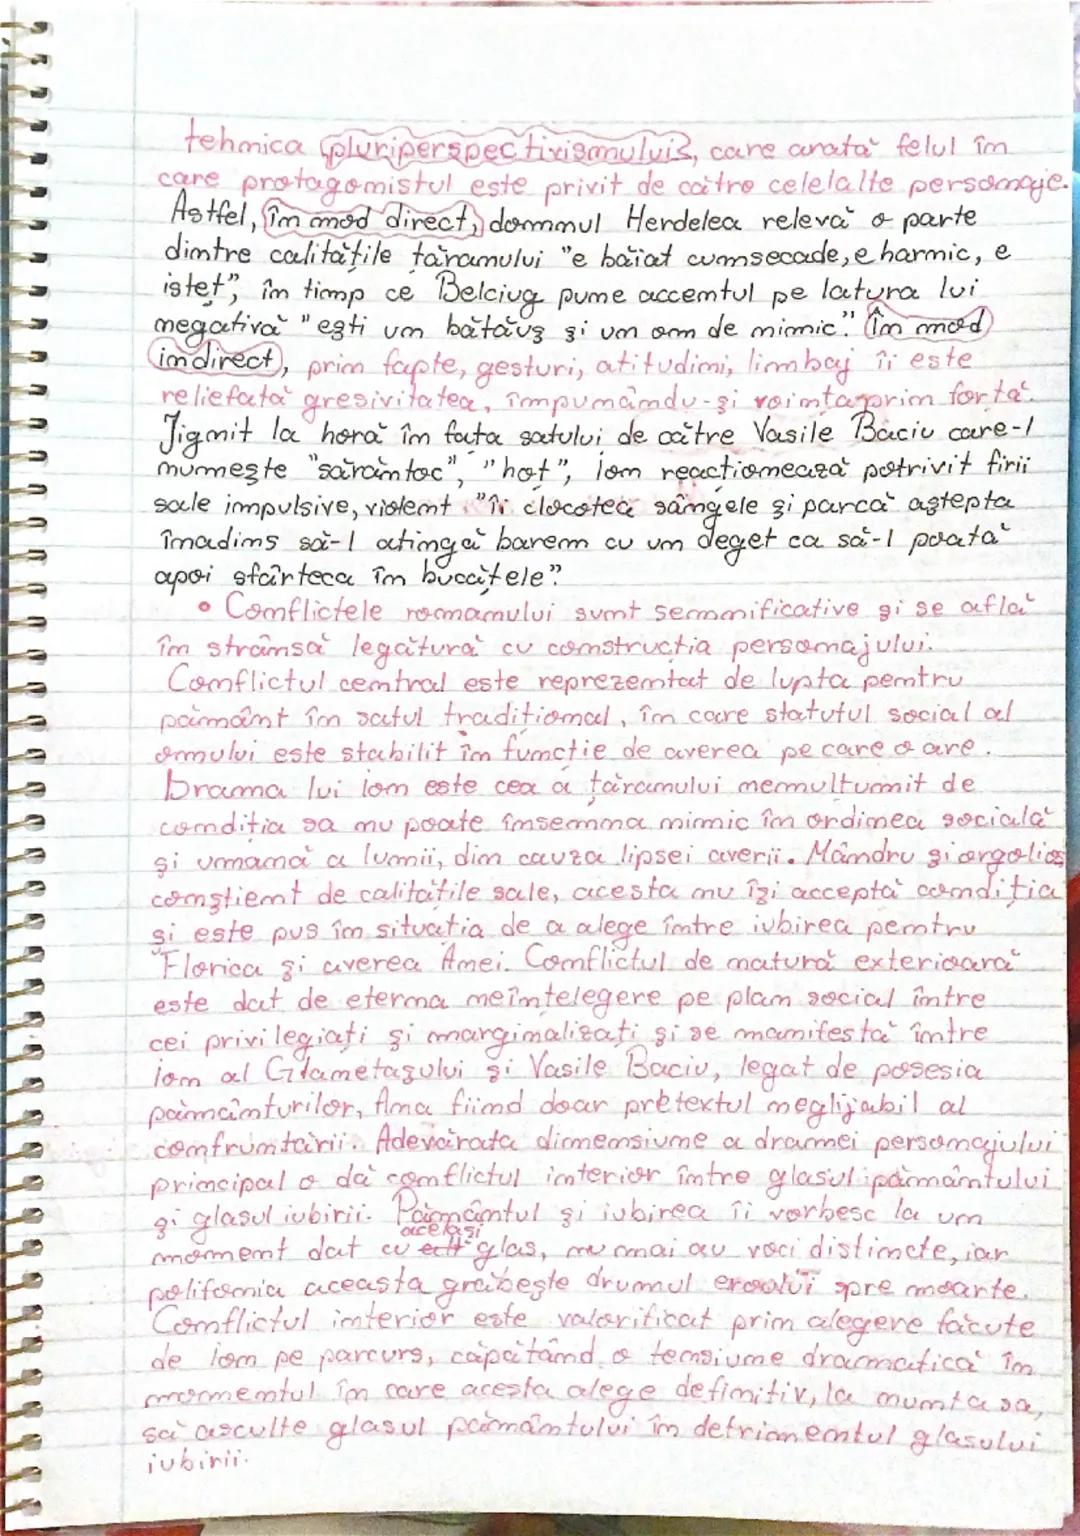 tehnica pluriperspectivismului, care arată felul în
care protagonistul este privit de către celelalte personaje.
Astfel, în mod direct, domnul Herdelea relevă o parte
dintre calitățile țăranului "e băiat cumsecade, e harnic, e
isteț", în timp ce Belciug pune accentul pe latura lui
negativă "ești un bătăuș și un om de nimic". În mod
indirect, prin fapte, gesturi, atitudini, limbaj îi este
reliefată gresivitatea, impunându-și voința prin forță.
Jignit la horă în fața satului de către Vasile Baciu care-l
numește "sărăntoc", "hoț", Ion reacționează potrivit firii
sale impulsive, violent "îi clocotea sângele și parcă aștepta
înadins să-l atingă barem cu un deget ca să-l poată
apoi sfârteca în bucățele".
• Conflictele romanului sunt semnificative și se află
în strânsă legătură cu construcția personajului.
Conflictul central este reprezentat de lupta pentru
pământ în satul tradițional, în care statutul social al
omului este stabilit în funcție de averea pe care o are.
Drama lui Ion este cea a țăranului nemulțumit de
condiția sa nu poate însemna nimic în ordinea socială
și umană a lumii, din cauza lipsei averii. Mândru și orgolios
conștient de calitățile sale, acesta nu își acceptă condiția
și este pus în situația de a alege între iubirea pentru
Florica și averea Anei. Conflictul de natură exterioară
este dat de eterna neînțelegere pe plan social între
cei privilegiați și marginalizați și se manifestă între
Ion al Glanetașului și Vasile Baciu, legat de posesia
pământurilor, Ana fiind doar pretextul neglijabil al
confruntării. Adevărata dimensiune a dramei personajului
principal o dă conflictul interior între glasul pământului
și glasul iubirii. Pământul și iubirea îi vorbesc la un
moment dat cu același glas, nu mai au voci distincte, iar
polifonia aceasta grăbește drumul eroului spre moarte.
Conflictul interior este valorificat prin alegere făcute
de Ion pe parcurs, căpătând o tensiune dramatică în
momentul în care acesta alege definitiv, la nunta sa,
să asculte glasul pământului în detrimentul glasului
iubirii.